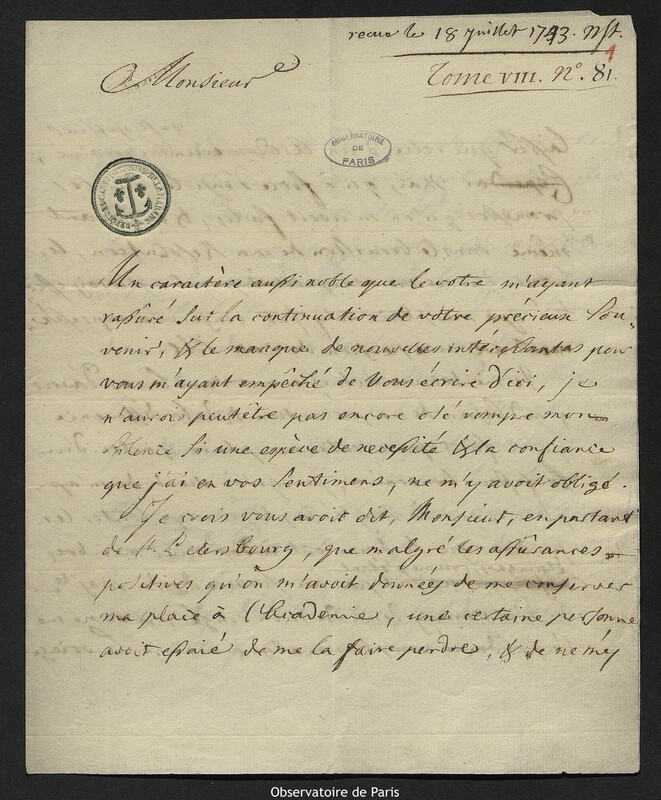 recue le 18 Juillet 1743. Nst.
1
Tome VIII. N.° 81.
Monsieur
OBSERVATOIRE
DE
PARIS
Un caractère aussi noble que le votre m'ayant
rassuré sur la continuation de votre précieux sou-
venir, & le manque de nouvelles intéressantes pour
vous m'ayant empêché de vous écrire d'ici, je
n'aurois peutêtre pas encore osé rompre mon
silence si une espèce de necessité & la confiance
que j'ai en vos sentimens, ne m'y avoit obligé.
Je crois vous avoir dit, Monsieur, en partant
de St. Petersbourg, que malgré les assurances
positives qu'on m'avoit données de me conserver
ma place à l'Academie, une certaine personne
avoit essaié de me la faire perdre, & de ne m'ey
Observatoire de Paris